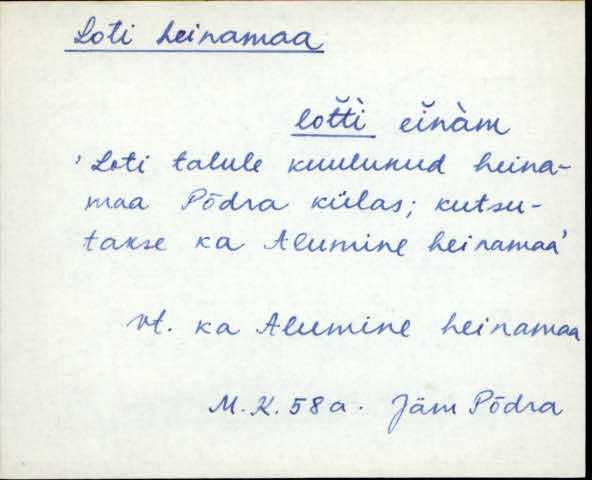 Loti heinamaa
lot̆t̀i ĕinàm
'Loti talule kuulunud heina-
maa Põdra külas; kutsu-
takse ka Alumine heinamaa'
vt. ka Alumine heinamaa
M.K. 58a. Jäm Põdra